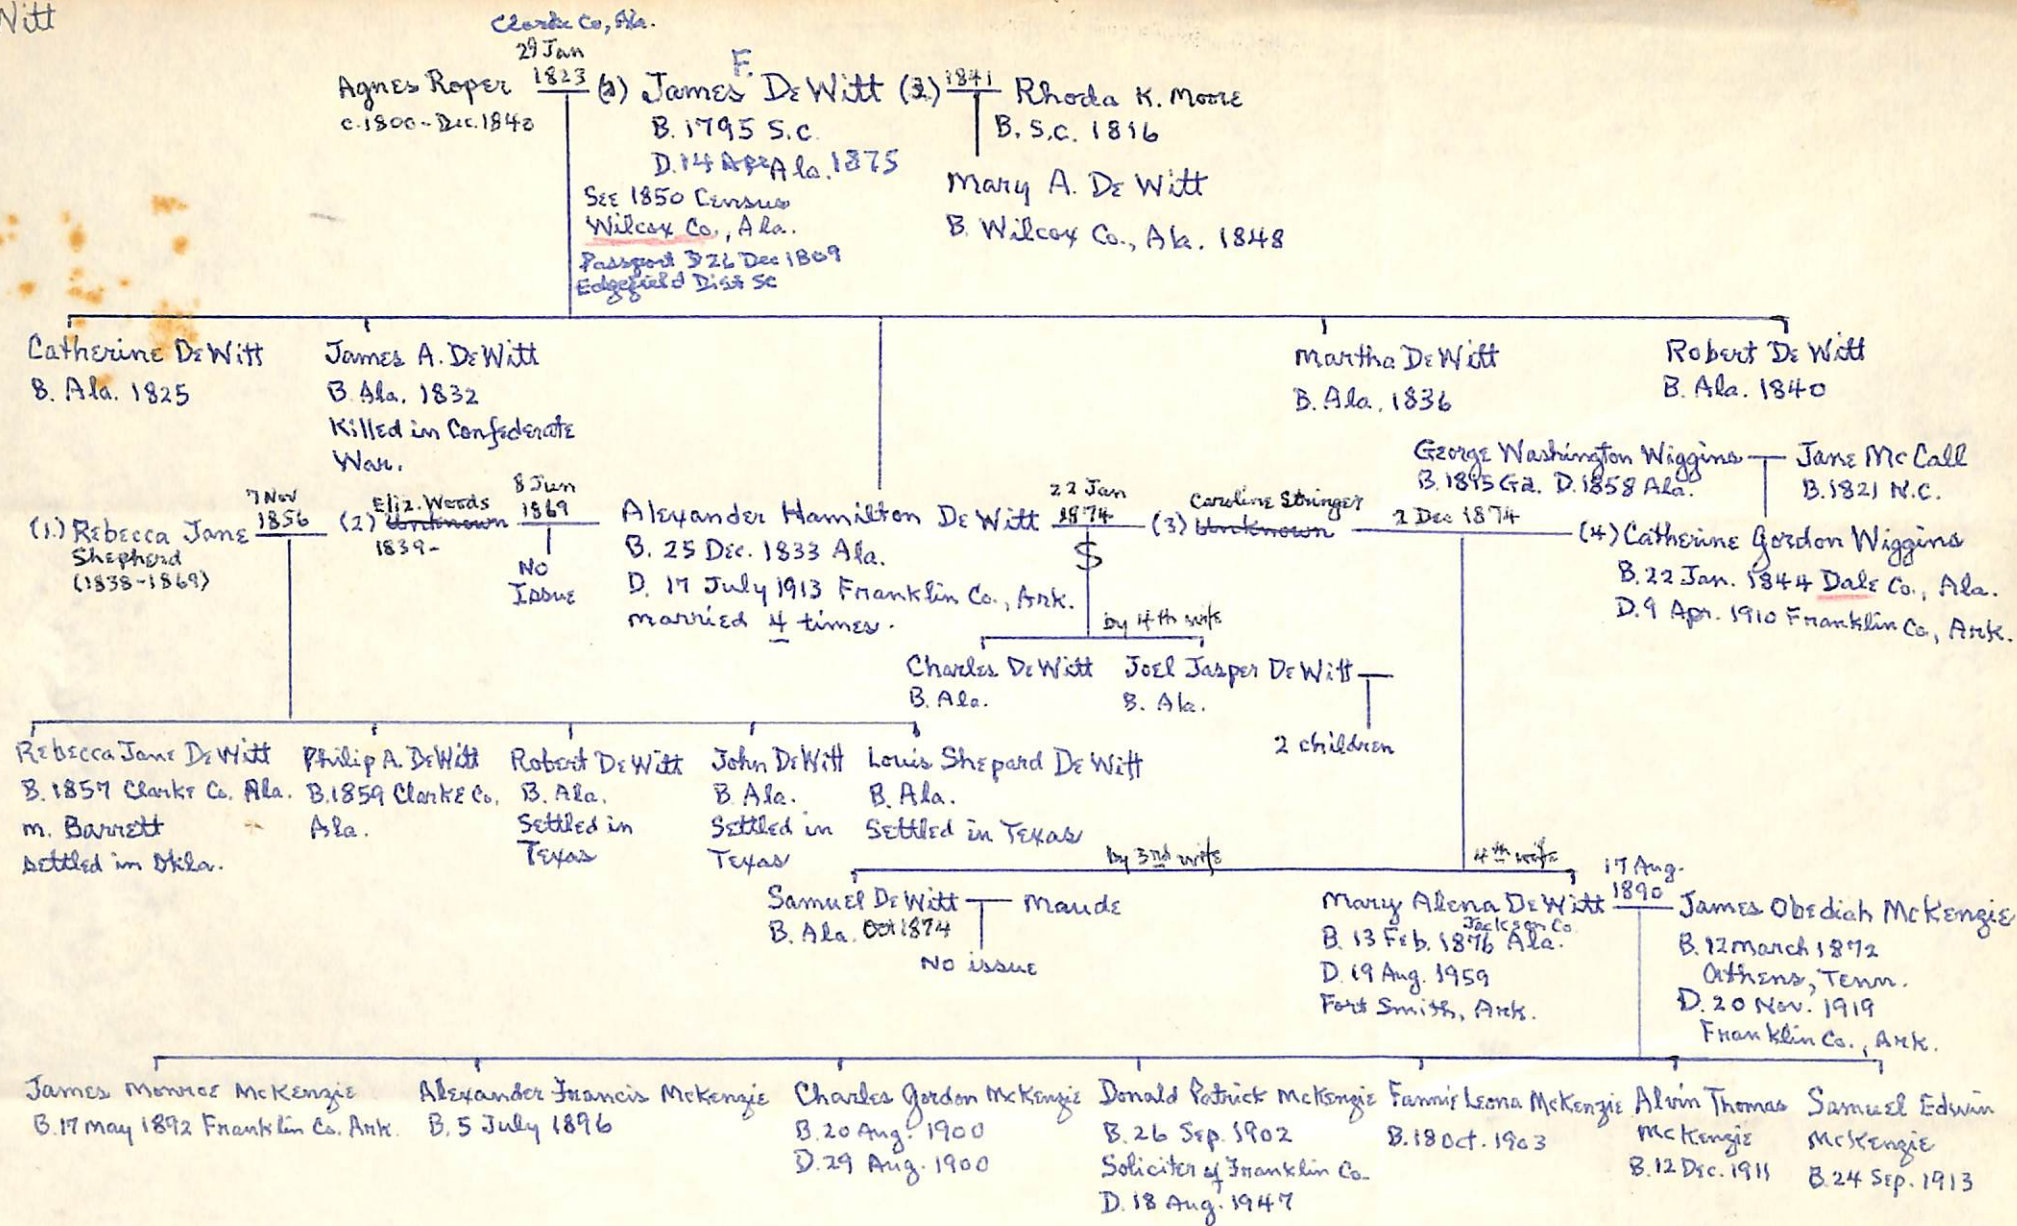 Witt
Clarke Co, Ala.
29 Jan
1823
Agnes Roper
c.1800-Dec.1840
F.
(1) James De Witt (2)
B. 1795 S.C.
D. 14 Apr Ala. 1875
See 1850 Census
Wilcox Co., Ala.
Passport 26 Dec 1809
Edgefield Dist SC
1841
Rhoda K. Moore
B. S.C. 1816
Mary A. De Witt
B. Wilcox Co., Ala. 1848
Catherine De Witt
B. Ala. 1825
James A. De Witt
B. Ala. 1832
Killed in Confederate
War.
Martha De Witt
B. Ala. 1836
Robert De Witt
B. Ala. 1840
George Washington Wiggins
B. 1815 Ga. D. 1858 Ala.
Jane McCall
B. 1821 N.C.
(1.) Rebecca Jane
Shepherd
(1838-1869)
7 Nov
1856
Eliz. Woods
(2) Unknown
1839-
8 Jun
1869
No
Issue
Alexander Hamilton De Witt
B. 25 Dec. 1833 Ala.
D. 17 July 1913 Franklin Co., Ark.
married 4 times.
22 Jan
1874
Caroline Stringer
(3) Unknown
2 Dec 1874
(4) Catherine Gordon Wiggins
B. 22 Jan. 1844 Dale Co., Ala.
D. 9 Apr. 1910 Franklin Co., Ark.
by 4th wife
Charles De Witt
B. Ala.
Joel Jasper De Witt
B. Ala.
2 children
Rebecca Jane De Witt
B. 1857 Clarke Co. Ala.
m. Barrett
settled in Okla.
Philip A. De Witt
B. 1859 Clarke Co.
Ala.
Robert De Witt
B. Ala.
Settled in
Texas
John De Witt
B. Ala.
Settled in
Texas
Louis Shepard De Witt
B. Ala.
Settled in Texas
by 3rd wife
4th wife
Samuel De Witt
B. Ala. Oct 1874
Maude
No issue
Mary Alena De Witt
Jackson Co
B. 13 Feb. 1876 Ala.
D. 19 Aug. 1959
Fort Smith, Ark.
17 Aug.
1890
James Obediah McKenzie
B. 12 March 1872
Athens, Tenn.
D. 20 Nov. 1919
Franklin Co., Ark.
James Monroe McKenzie
B. 17 May 1892 Franklin Co. Ark.
Alexander Francis McKenzie
B. 5 July 1896
Charles Gordon McKenzie
B. 20 Aug. 1900
D. 29 Aug. 1900
Donald Patrick McKenzie
B. 26 Sep. 1902
Soliciter of Franklin Co.
D. 18 Aug. 1947
Fannie Leona McKenzie
B. 18 Oct. 1903
Alvin Thomas
McKenzie
B. 12 Dec. 1911
Samuel Edwin
McKenzie
B. 24 Sep. 1913